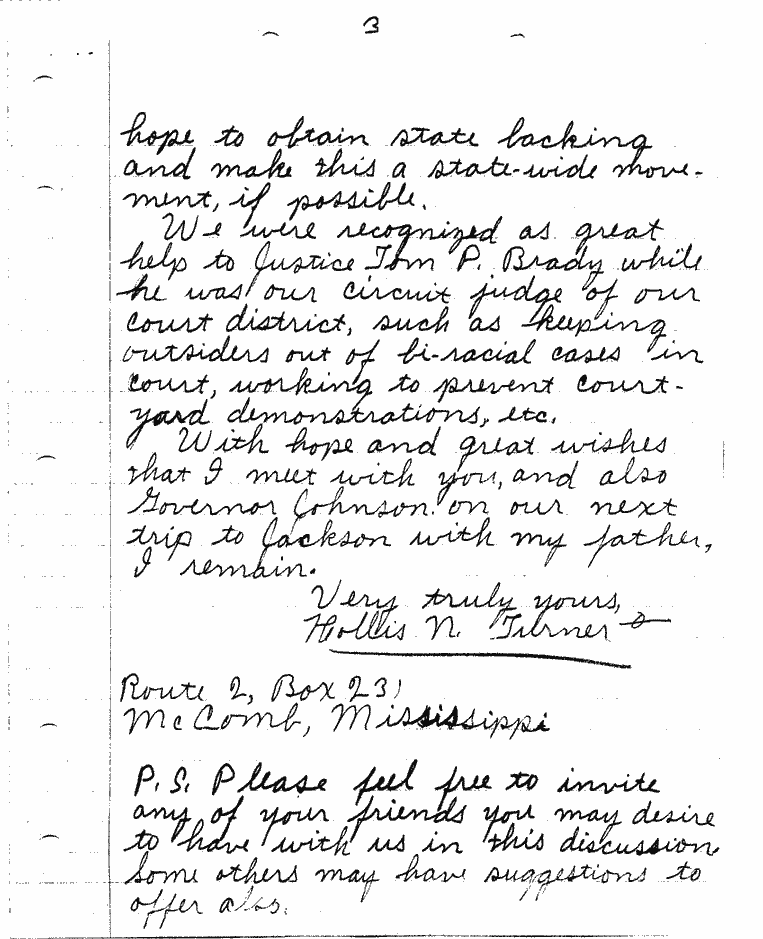 3
hope to obtain state backing
and make this a state-wide move-
ment, if possible.
We were recognized as great
help to Justice Tom P. Brady while
he was our circuit judge of our
court district, such as keeping
outsiders out of bi-racial cases in
court, working to prevent court-
yard demonstrations, etc.
With hope and great wishes
that I meet with you, and also
Governor Johnson on our next
trip to Jackson with my father,
I remain.
Very truly yours,
Hollis N. Turner
Route 2, Box 231
McComb, Mississippi
P.S. Please feel free to invite
any of your friends you may desire
to have with us in this discussion
Some others may have suggestions to
offer also.